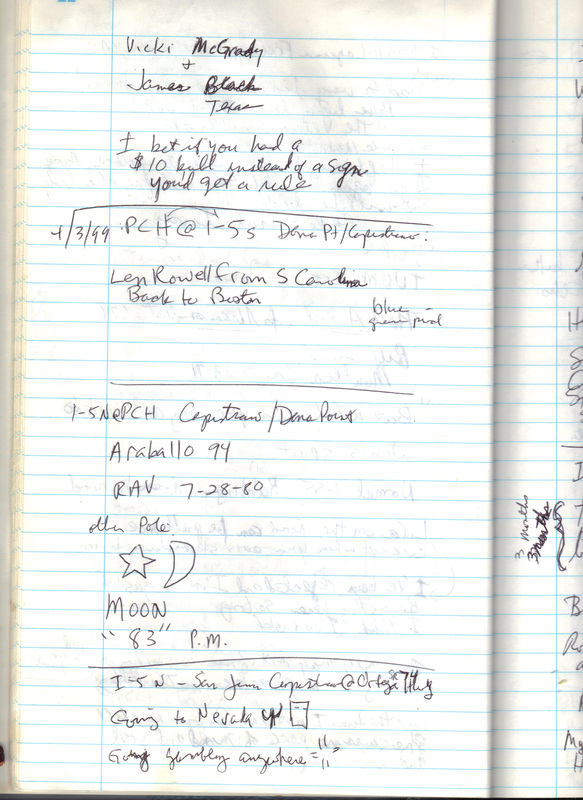 Vicki McGrady
+
James Black
Texas
I bet if you had a
$10 bill instead of a sign
you'd get a ride
4/3/99 PCH @ I-5 s Dana Pt/Capistrano.
Len Rowell from S Carolina
Back to Boston
blue
green
I-5N@PCH Capistrano/Dana Point
Araballo 94
RAV 7-28-80
other Pole
MOON
"83" P.M.
I-5 N - San Juan Capistrano @ Ortega Hwy
Going to Nevada
Going gambling anywhere = " "
3 months
3 months